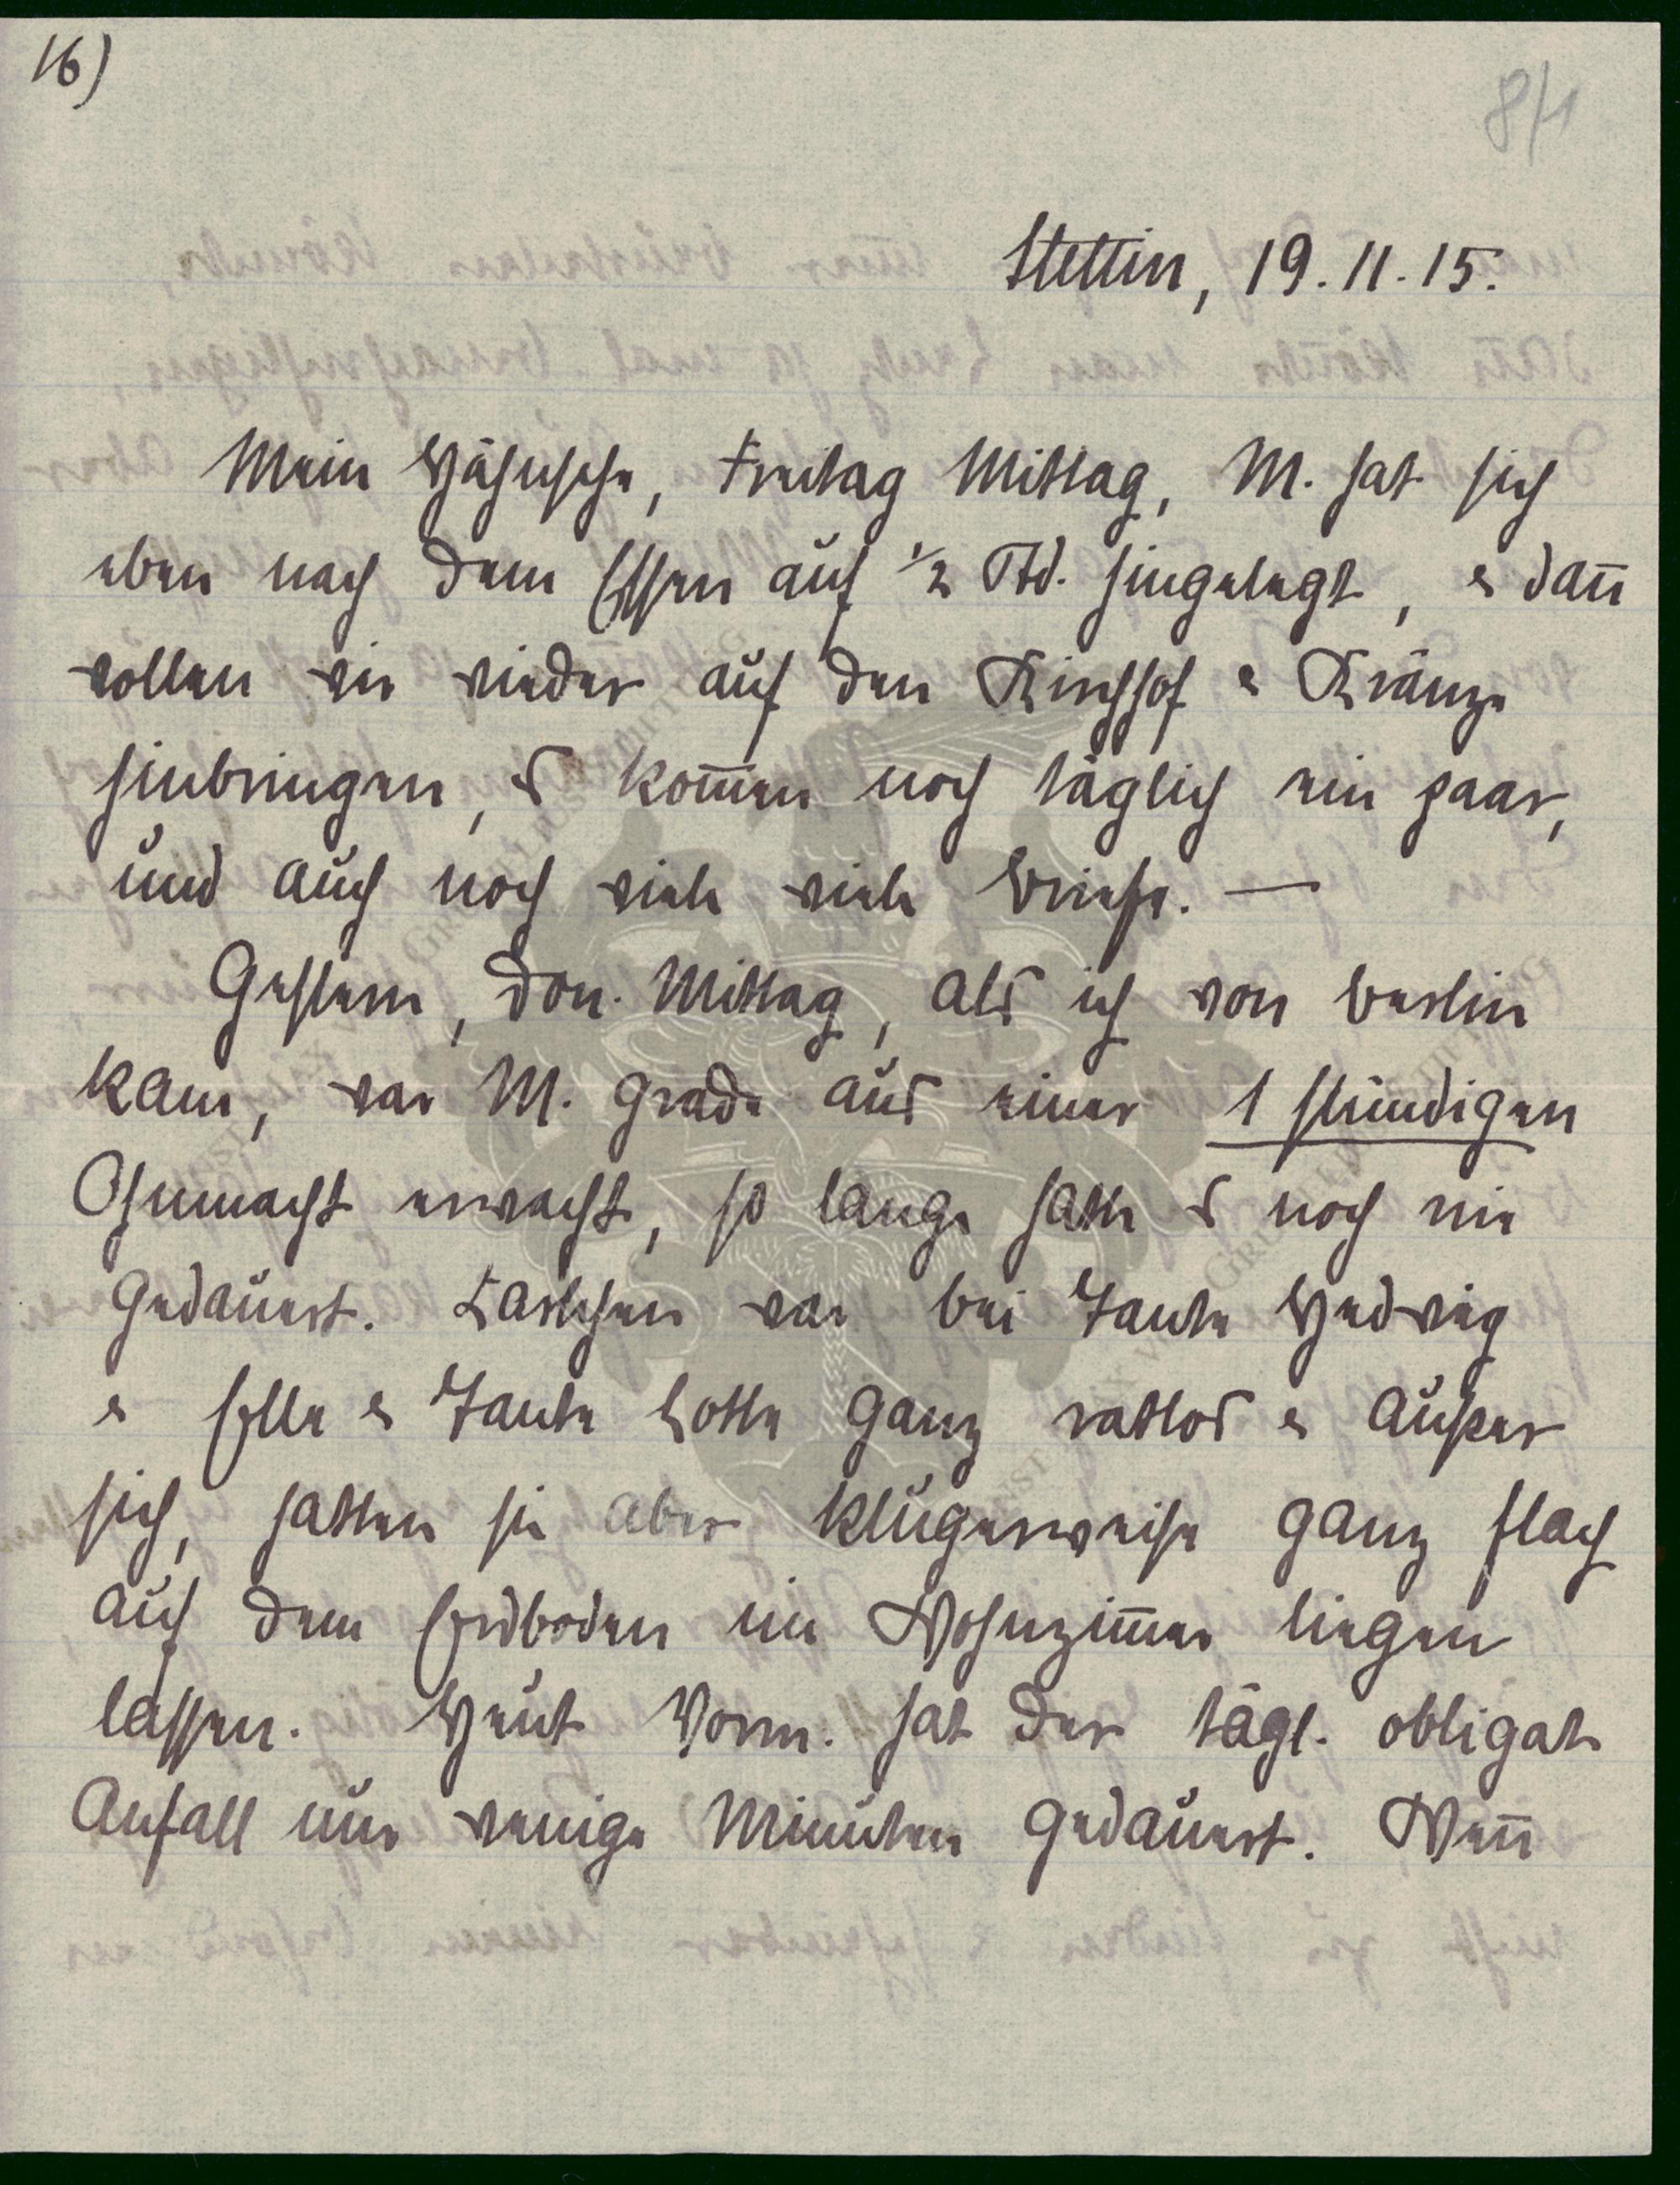 16)
84
Stettin, 19.11.15.
Mein Hähnsche, Freitag Mittag, M. hat sich
eben nach dem Essen auf 1/2 Std. hingelegt, & dan̄
wollen wir wieder auf den Kirchhof & Kränze
hinbringen, es kom̄en noch täglich ein paar,
und auch noch viele viele Briefe. —
Gestern, Don. Mittag, als ich von Berlin
kam, war M. grade aus einer 1 stündigen
Ohnmacht erwacht, so lange hatte es noch nie
gedauert. Karlchen war bei Tante Hedwig
& Elle & Tante Lotte ganz ratlos & außer
sich, hatten sie aber klugerweise ganz flach
auf dem Erdboden im Wohnzim̄er liegen
lassen. Heut Vorm. hat der tägl. obligate
Anfall nur wenige Minuten gedauert. Wen̄